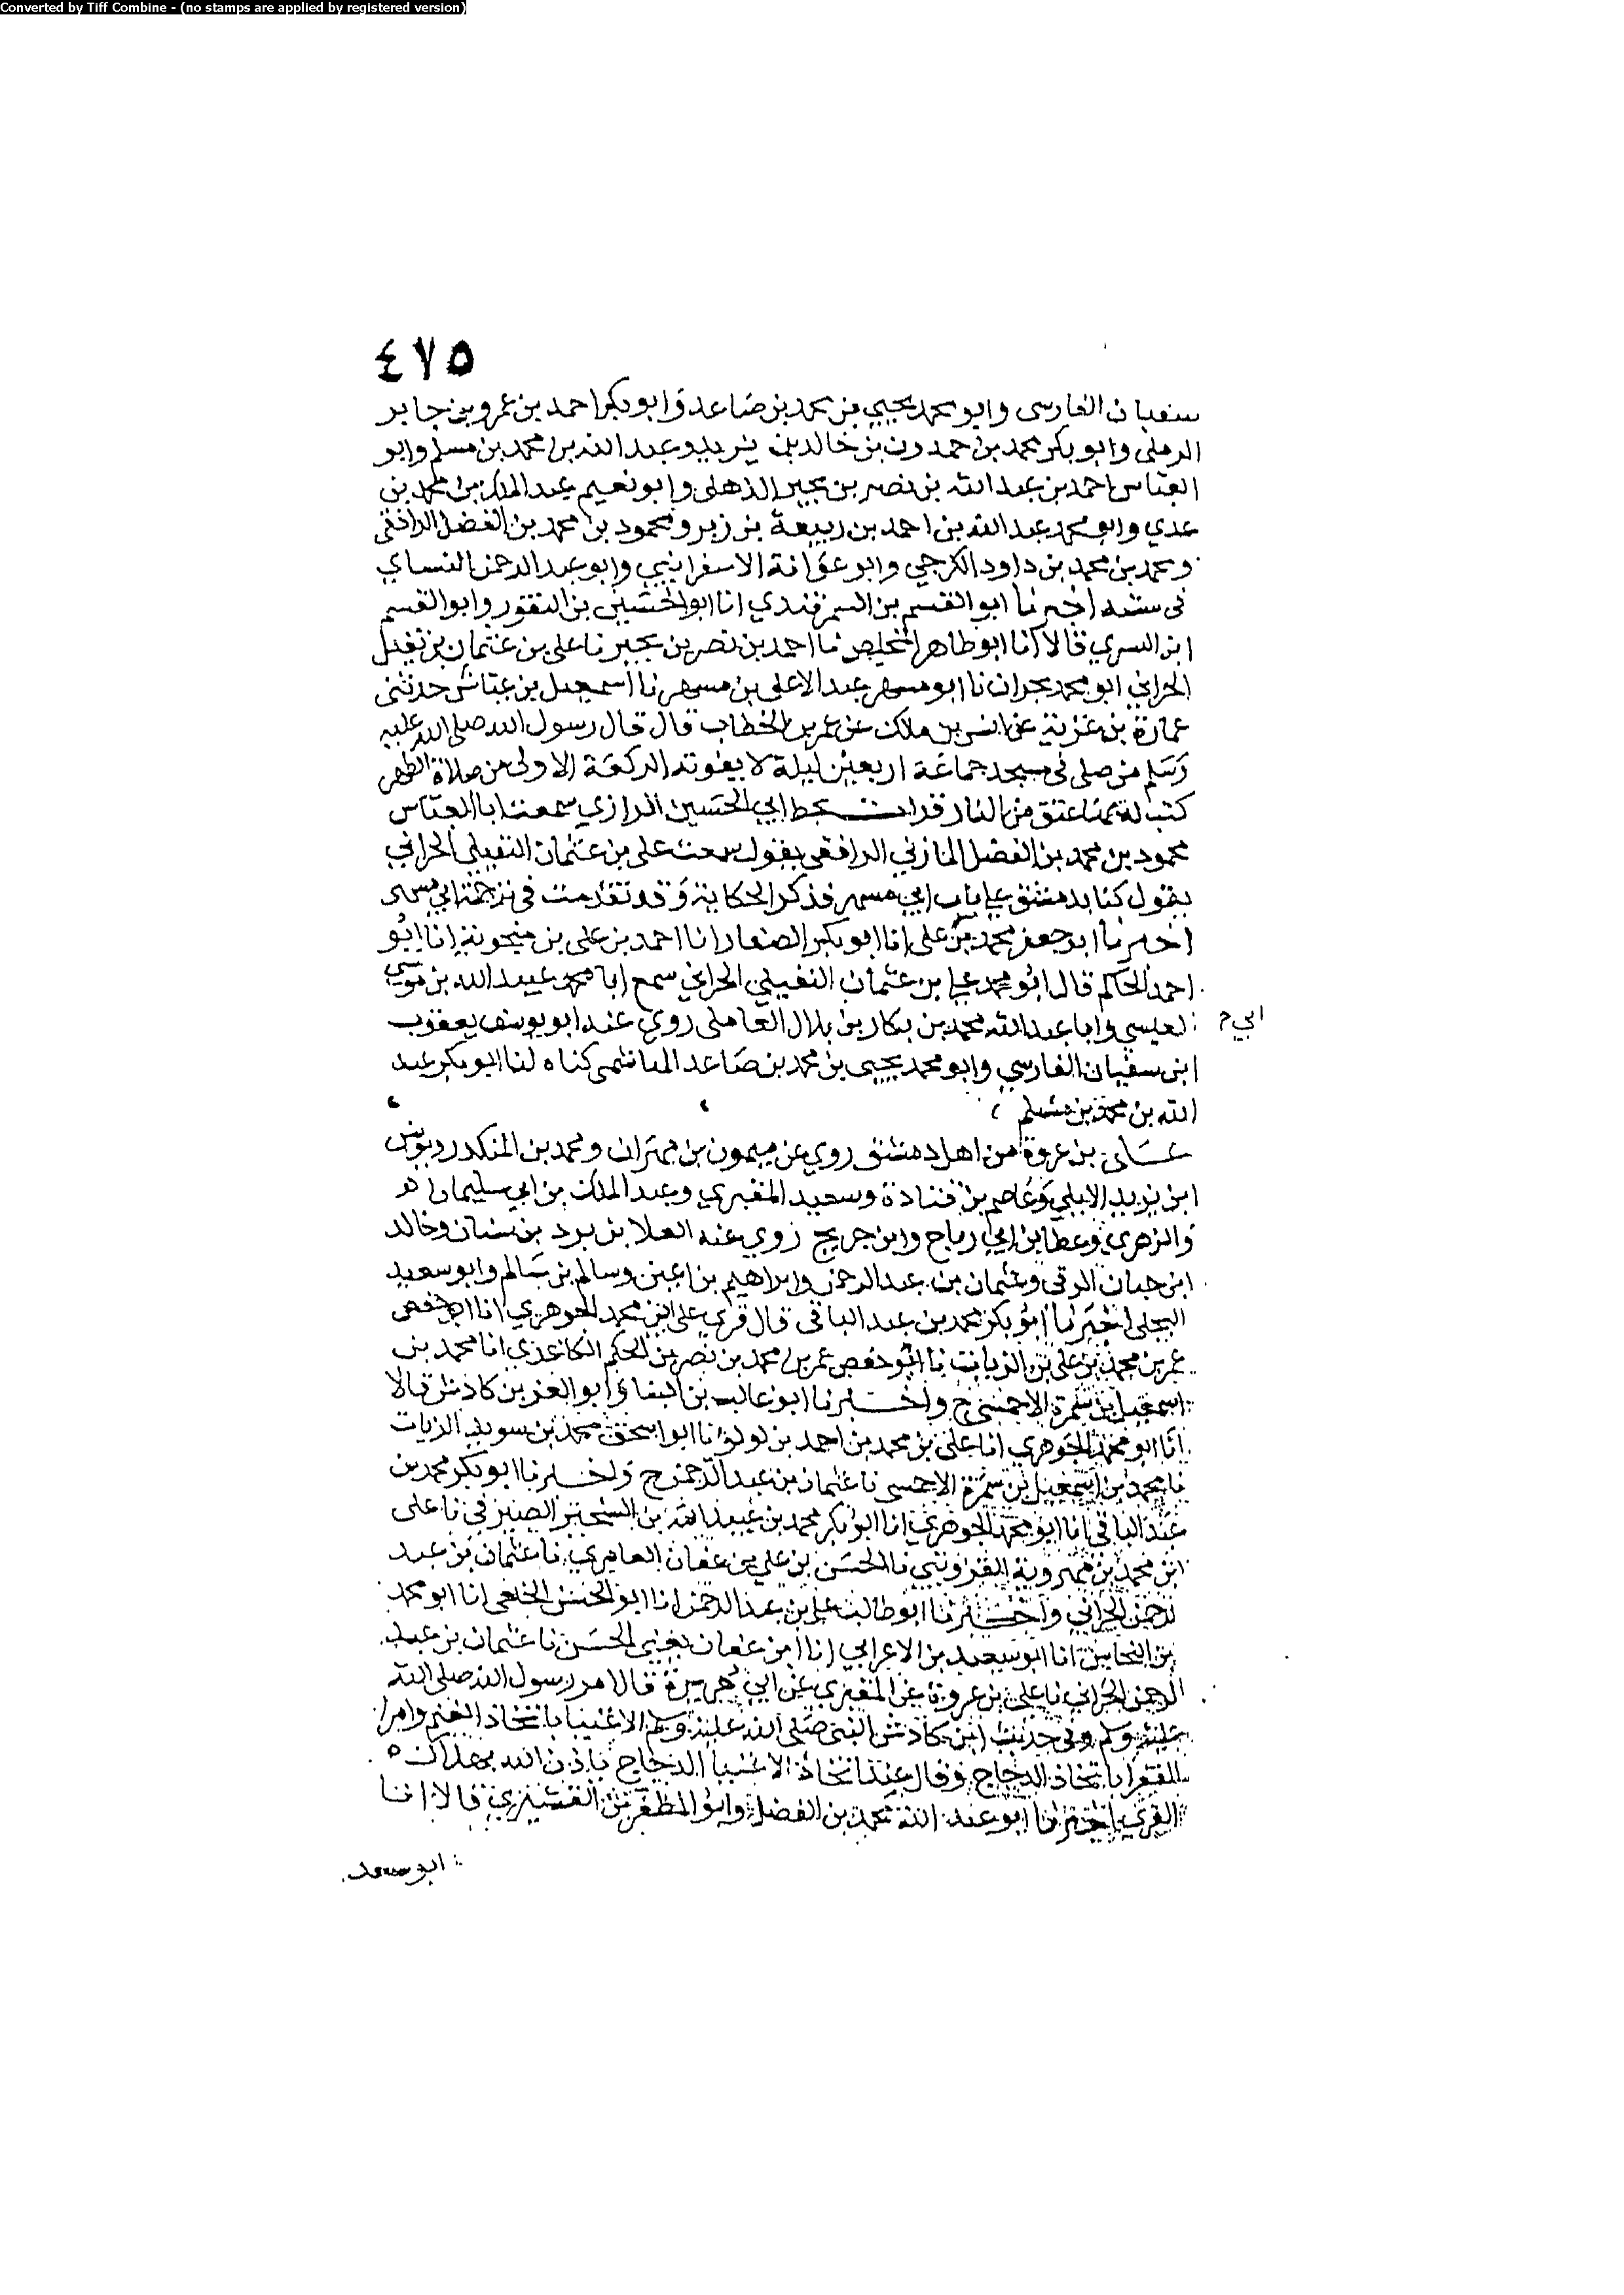 Converted by Tiff Combine - (no stamps are applied by registered version)
٤٧٥
سفيان الفارسى وابو محمد يحيي بن محمد بن صاعد وابو بكر احمد بن عمرو بن جابر
الرملى وابو بكر محمد بن حمدون بن خالد بن يزيد وعبد الله بن محمد بن مسلم وابو
العباس احمد بن عبد الله بن نصر بن بجير الذهلى وابو نعيم عبد الملك بن محمد بن
عدي وابو محمد عبد الله بن احمد بن ربيعة بن زبر ومحمود بن محمد بن الفضل الرافقى
ومحمد بن محمد بن داود الكرجي وابو عوانة الاسفرايني وابو عبد الرحمن النساي
فى سننه اخبرنا ابو القسم بن السمرقندي انا ابو الحسين بن النقور وابو القسم
ابن البسري قالا انا ابو طاهر المخلص نا احمد بن نصر بن بجير نا على بن عثمان بن نفيل
الحراني ابو محمد بحران نا ابو مسهر عبد الاعلى بن مسهر نا اسمعيل بن عياش حدثنى
عمارة بن غزية عن انس بن ملك عن عمر بن الخطاب قال قال رسول الله صلى الله عليه
وسلم من صلى فى مسجد جماعة اربعين ليلة لا يفوته الركعة الاولى من صلاة الظهر
كتب له بها عتق من النار قرات بخط ابي الحسين الرازي سمعت ابا العباس
محمود بن محمد بن الفضل المازني الرافقى يقول سمعت على بن عثمان النفيلي الحراني
يقول كنا بدمشق على باب ابي مسهر فذكر الحكاية وقد تقدمت فى ترجمة ابي مسهر
اخبرنا ابو جعفر محمد بن على انا ابو بكر الصفار انا احمد بن على بن منجوية انا ابو
احمد الحاكم قال ابو محمد على بن عثمان النفيلي الحراني سمع ابا محمد عبيد الله بن موسي
العبسي وابا عبد الله محمد بن بكار بن بلال العاملى روي عنه ابو يوسف يعقوب
ابي م
ابن سفيان الفارسي وابو محمد يحيى بن محمد بن صاعد الهاشمى كناه لنا ابو بكر عبد
الله بن محمد بن مسلم
على بن عروة من اهل دمشق روي عن ميمون بن مهران ومحمد بن المنكدر ويونس
ابن يزيد الايلي وعاصم بن قتادة وسعيد المقبري وعبد الملك بن ابي سليمان
والزهري وعطا بن ابي رباح وابن جريج روي عنه العلا بن برد بن سنان وخالد
ابن حيان الرقى وعثمان بن عبد الرحمن وابراهيم بن اعين وسالم بن سالم وابو سعيد
البجلى اخبرنا ابو بكر محمد بن عبد الباقى قال قري على ابي محمد الجوهري انا ابو حفص
عمر بن محمد بن على بن الزيات نا ابو حفص عمر بن محمد بن نصر بن الحكم الكاغذي انا محمد بن
اسمعيل بن سمرة الاحمسى ح واخبرنا ابو غالب بن البنا وابو العز بن كادش قالا
انا ابو محمد الجوهري انا على بن محمد بن احمد بن لولو نا ابو اسحق محمد بن سويد الزيات
نا محمد بن اسمعيل بن سمرة الاحمسى نا عثمان بن عبد الرحمن ح واخبرنا ابو بكر محمد بن
عبد الباقى انا ابو محمد الجوهري انا ابو بكر محمد بن عبيد الله بن الشخير الصيرفى نا على
ابن محمد بن مهروية القزويني نا الحسن بن علي بن عفان العامري نا عثمان بن عبد
الرحمن الحراني واخبرنا ابو طالب على بن عبد الرحمن انا ابو الحسن الخلعى انا ابو محمد
بن النحاس انا ابو سعيد بن الاعرابي انا ابن عفان يعنى الحسن نا عثمان بن عبد
الرحمن الحراني نا على بن عروة عن المقبري عن ابي هريرة قال امر رسول الله صلى الله
عليه وسلم وفى حديث ابن كادش النبى صلى الله عليه وسلم الاغنيا باتخاذ الغنم وامر
الفقرا باتخاذ الدجاج وقال عند اتخاذ الاغنيا الدجاج ياذن الله بهلاك
القري اخبرنا ابو عبد الله محمد بن الفضل وابو المظفر بن القشيري قالا انا
ابو سعد